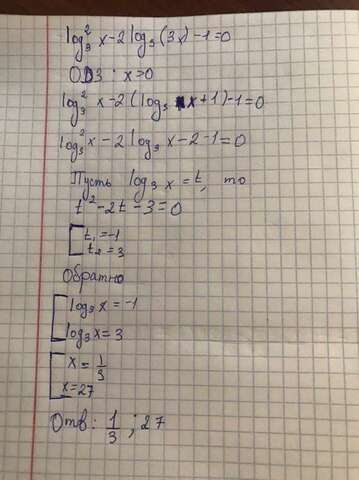 log₃² x - 2 log₃ (3x) - 1 = 0
ОДЗ : x > 0
log₃² x - 2 (log₃ x + 1) - 1 = 0
log₃² x - 2 log₃ x - 2 - 1 = 0
Пусть log₃ x = t, то
t² - 2t - 3 = 0
[ t₁ = -1
t₂ = 3
Обратно
[ log₃ x = -1
log₃ x = 3
[ x = 1/3
x = 27
Отв : 1/3 ; 27